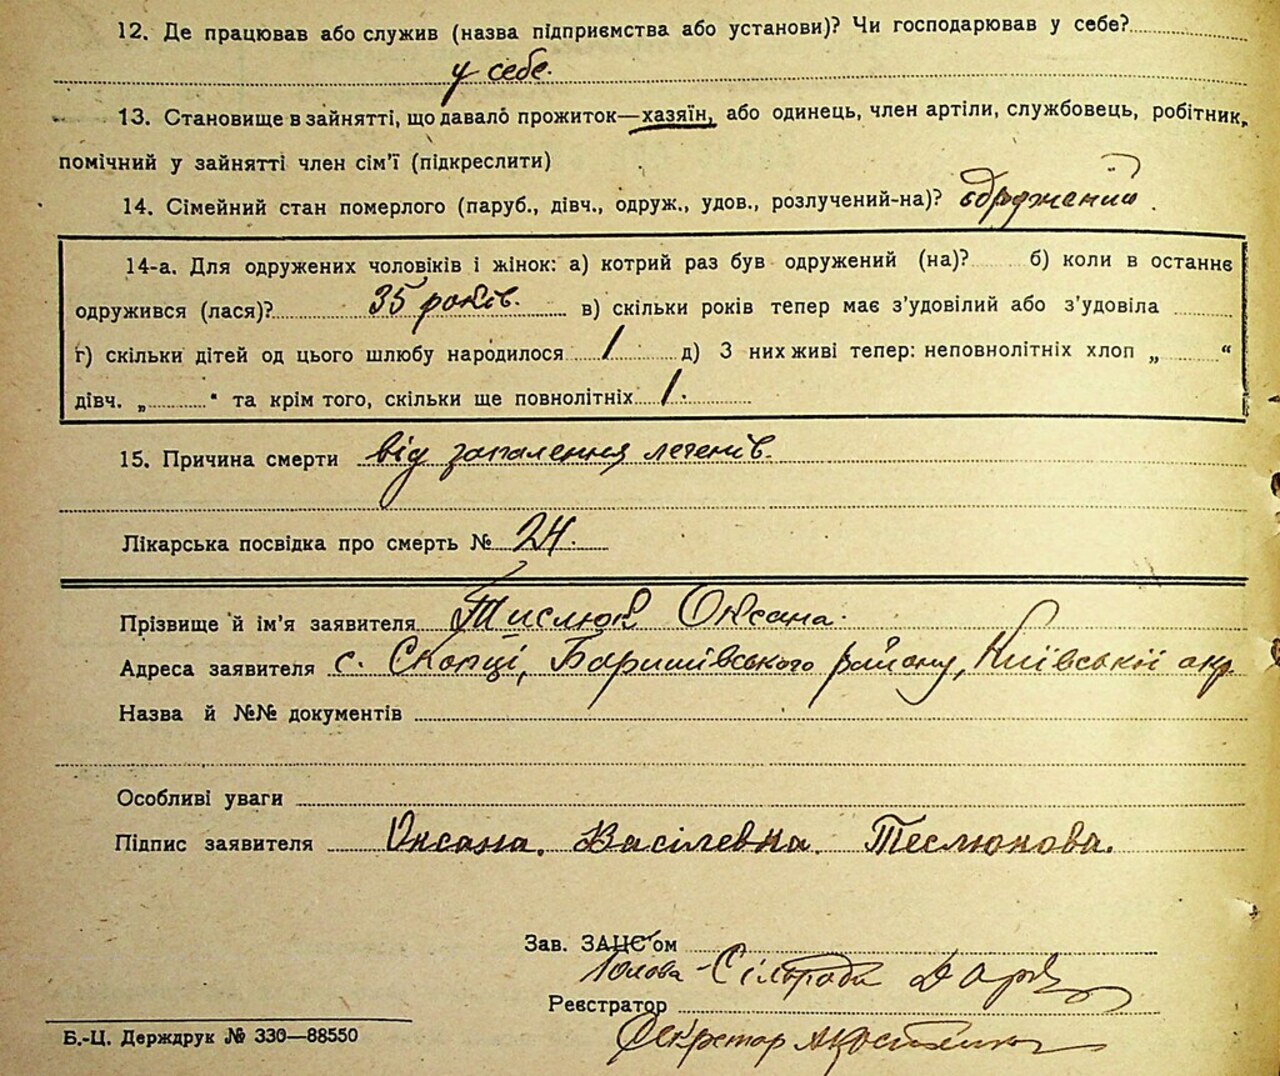 12. Де працював або служив (назва підприємства або установи)? Чи господарював у себе?
у себе.
13. Становище в зайнятті, що давало прожиток—хазяїн, або одинець, член артілі, службовець, робітник,
помічний у зайнятті член сім'ї (підкреслити)
14. Сімейний стан померлого (паруб., дівч., одруж., удов., розлучений-на)? одружений.
14-а. Для одружених чоловіків і жінок: а) котрий раз був одружений (на)? б) коли в останнє
одружився (лася)? 35 років. в) скільки років тепер має з'удовілий або з'удовіла
г) скільки дітей од цього шлюбу народилося 1 д) З них живі тепер: неповнолітніх хлоп „ “
дівч. „ “ та крім того, скільки ще повнолітніх 1.
15. Причина смерти від запалення легенів.
Лікарська посвідка про смерть № 24.
Прізвище й ім'я заявителя Тислюк Оксана.
Адреса заявителя с. Скопці, Баришівського району, Київської окр
Назва й №№ документів
Особливі уваги
Підпис заявителя Оксана. Васілевна. Теслюкова.
Зав. ЗАЦС'ом
Голова Сільради
Реєстратор
Секретар
Б.-Ц. Держдрук № 330—88550